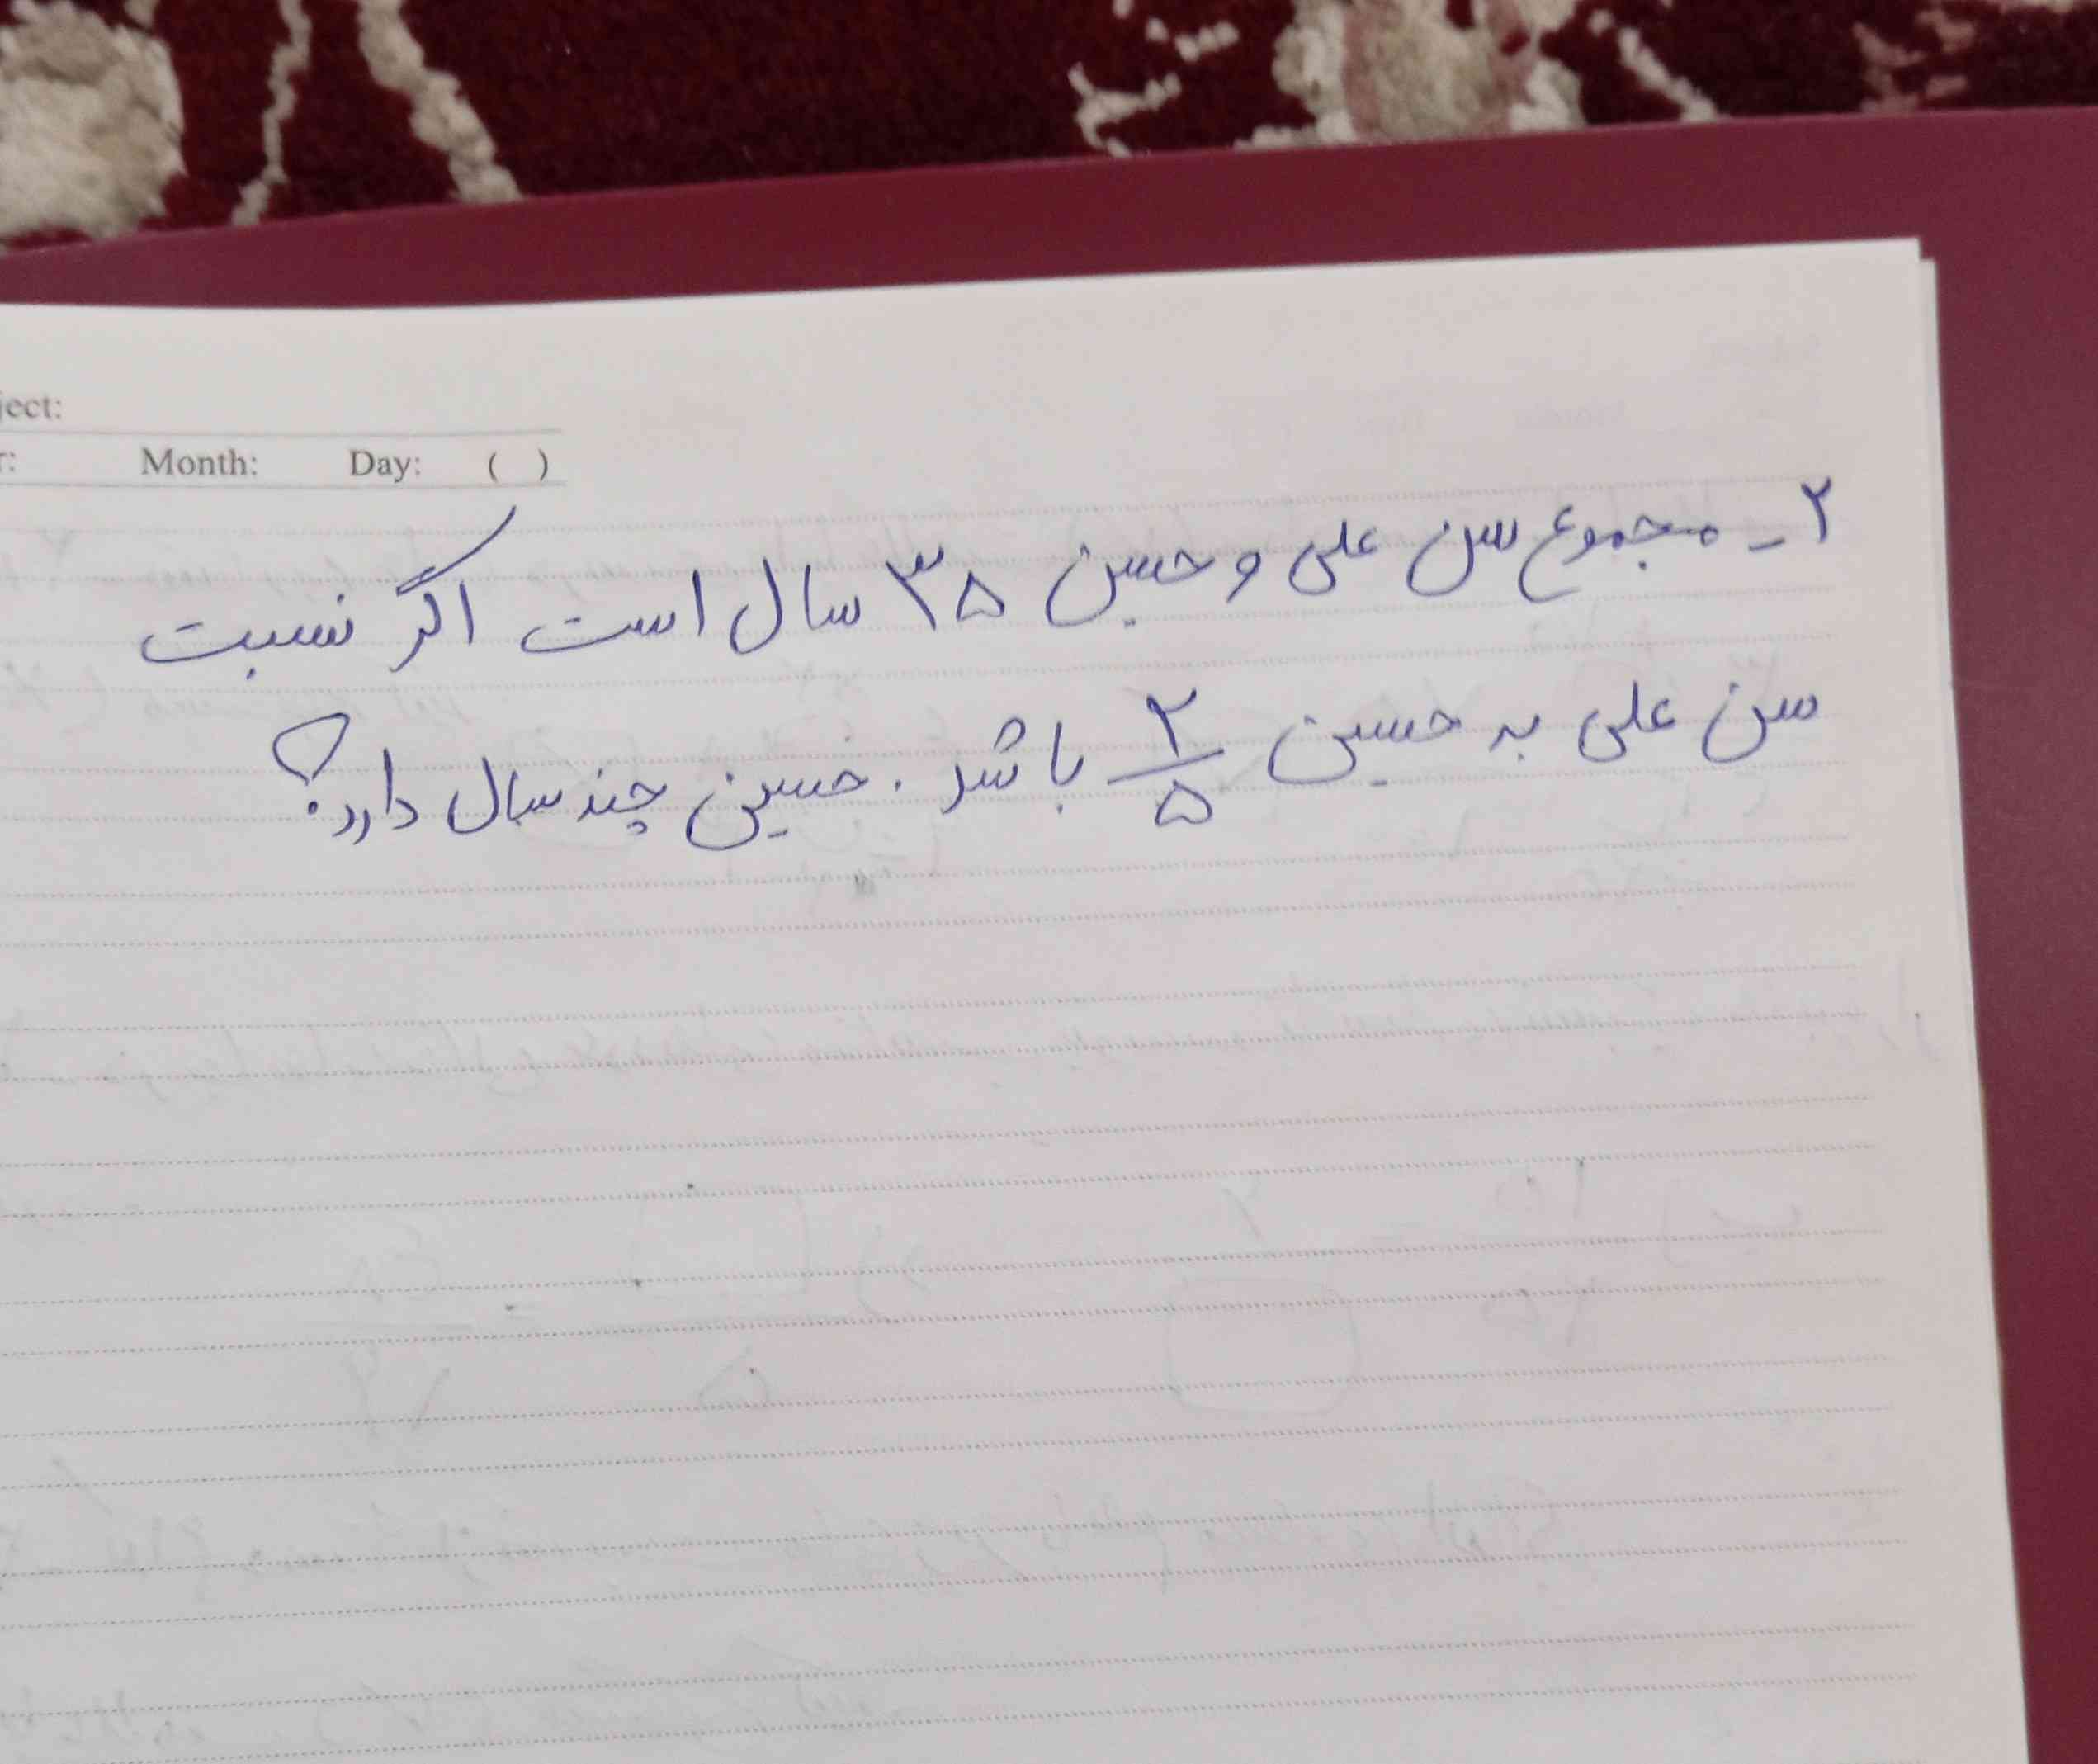 ject:
r: Month: Day: ( )
۲ - مجموع سن علی و حسین ۳۵ سال است اگر نسبت
سن علی به حسین ۲/۵ باشد . حسین چند سال دارد؟